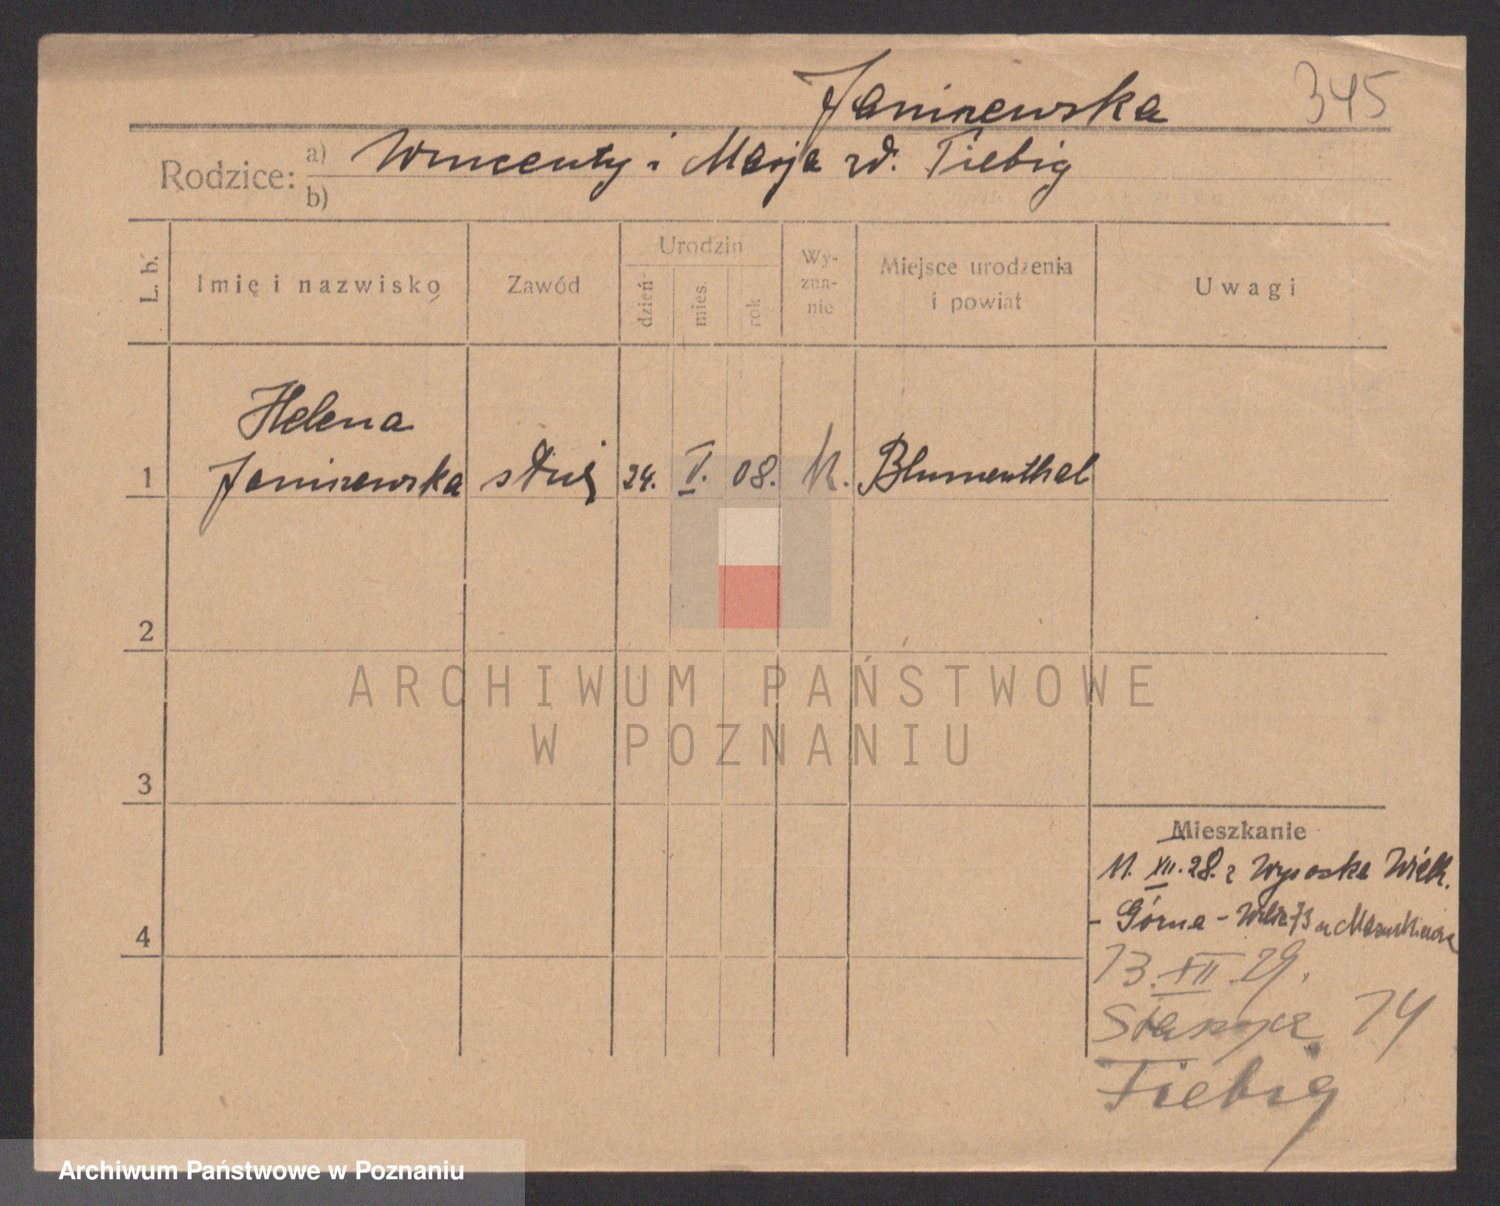 Janiszewska 345
Rodzice: a) Wincenty i Marja zd. Fiebig
b)
L. b. Imię i nazwisko Zawód Urodzin dzień mies. rok Wyznanie Miejsce urodzenia i powiat Uwagi
Helena
1 Janiszewska służ 24. V. 08. K. Blumenthal
2
ARCHIWUM PAŃSTWOWE
W POZNANIU
3
Mieszkanie
11. XII. 28. z Wysoka Wielk.
4 - Górna - Wilda 73 u
13. XII. 29.
14
Fiebig
Archiwum Państwowe w Poznaniu